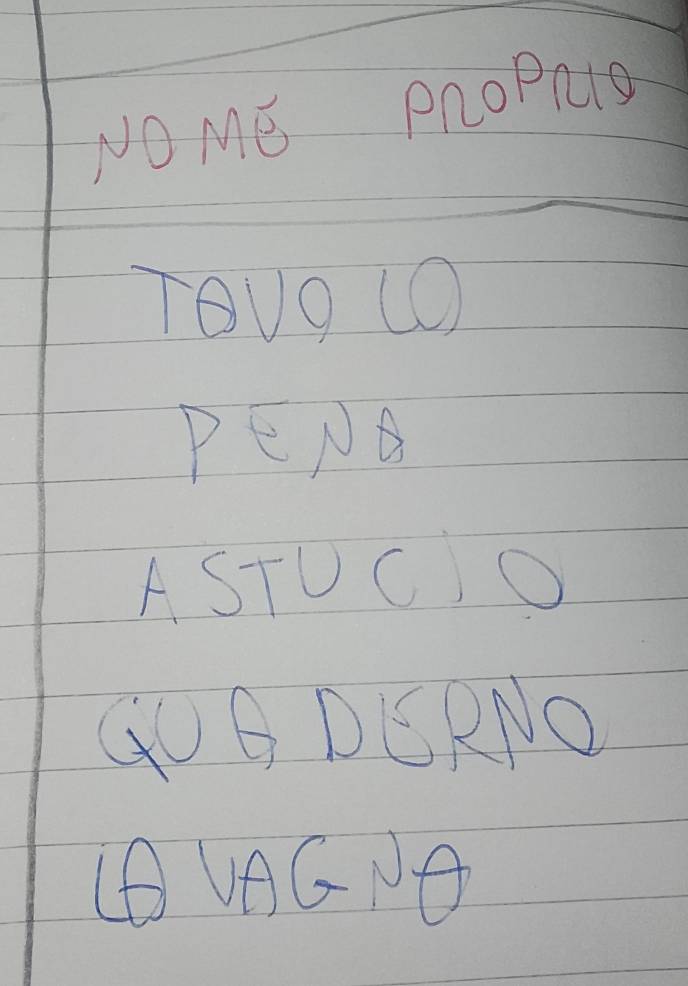 NOME PROPRIO
TAVOLO
PENA
ASTUCIO
QUADERNO
LAVAGNA